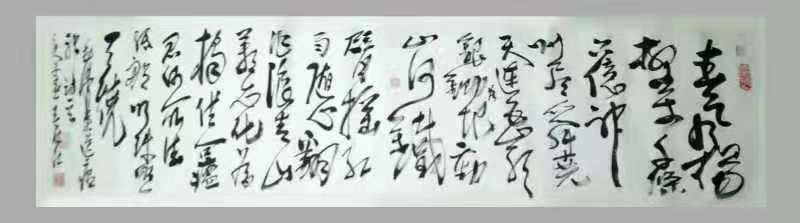 春风杨
柳万千条
六亿神
州尽舜尧
天连五岭
银锄落地动
山河铁
臂摇红
雨随心翻
作浪青山
着意化为
桥借问瘟
君欲何往
纸船明烛照
天烧
毛泽东送瘟
神诗